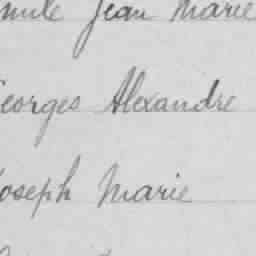 Emile Jean Marie
Georges Alexandre
Joseph Marie